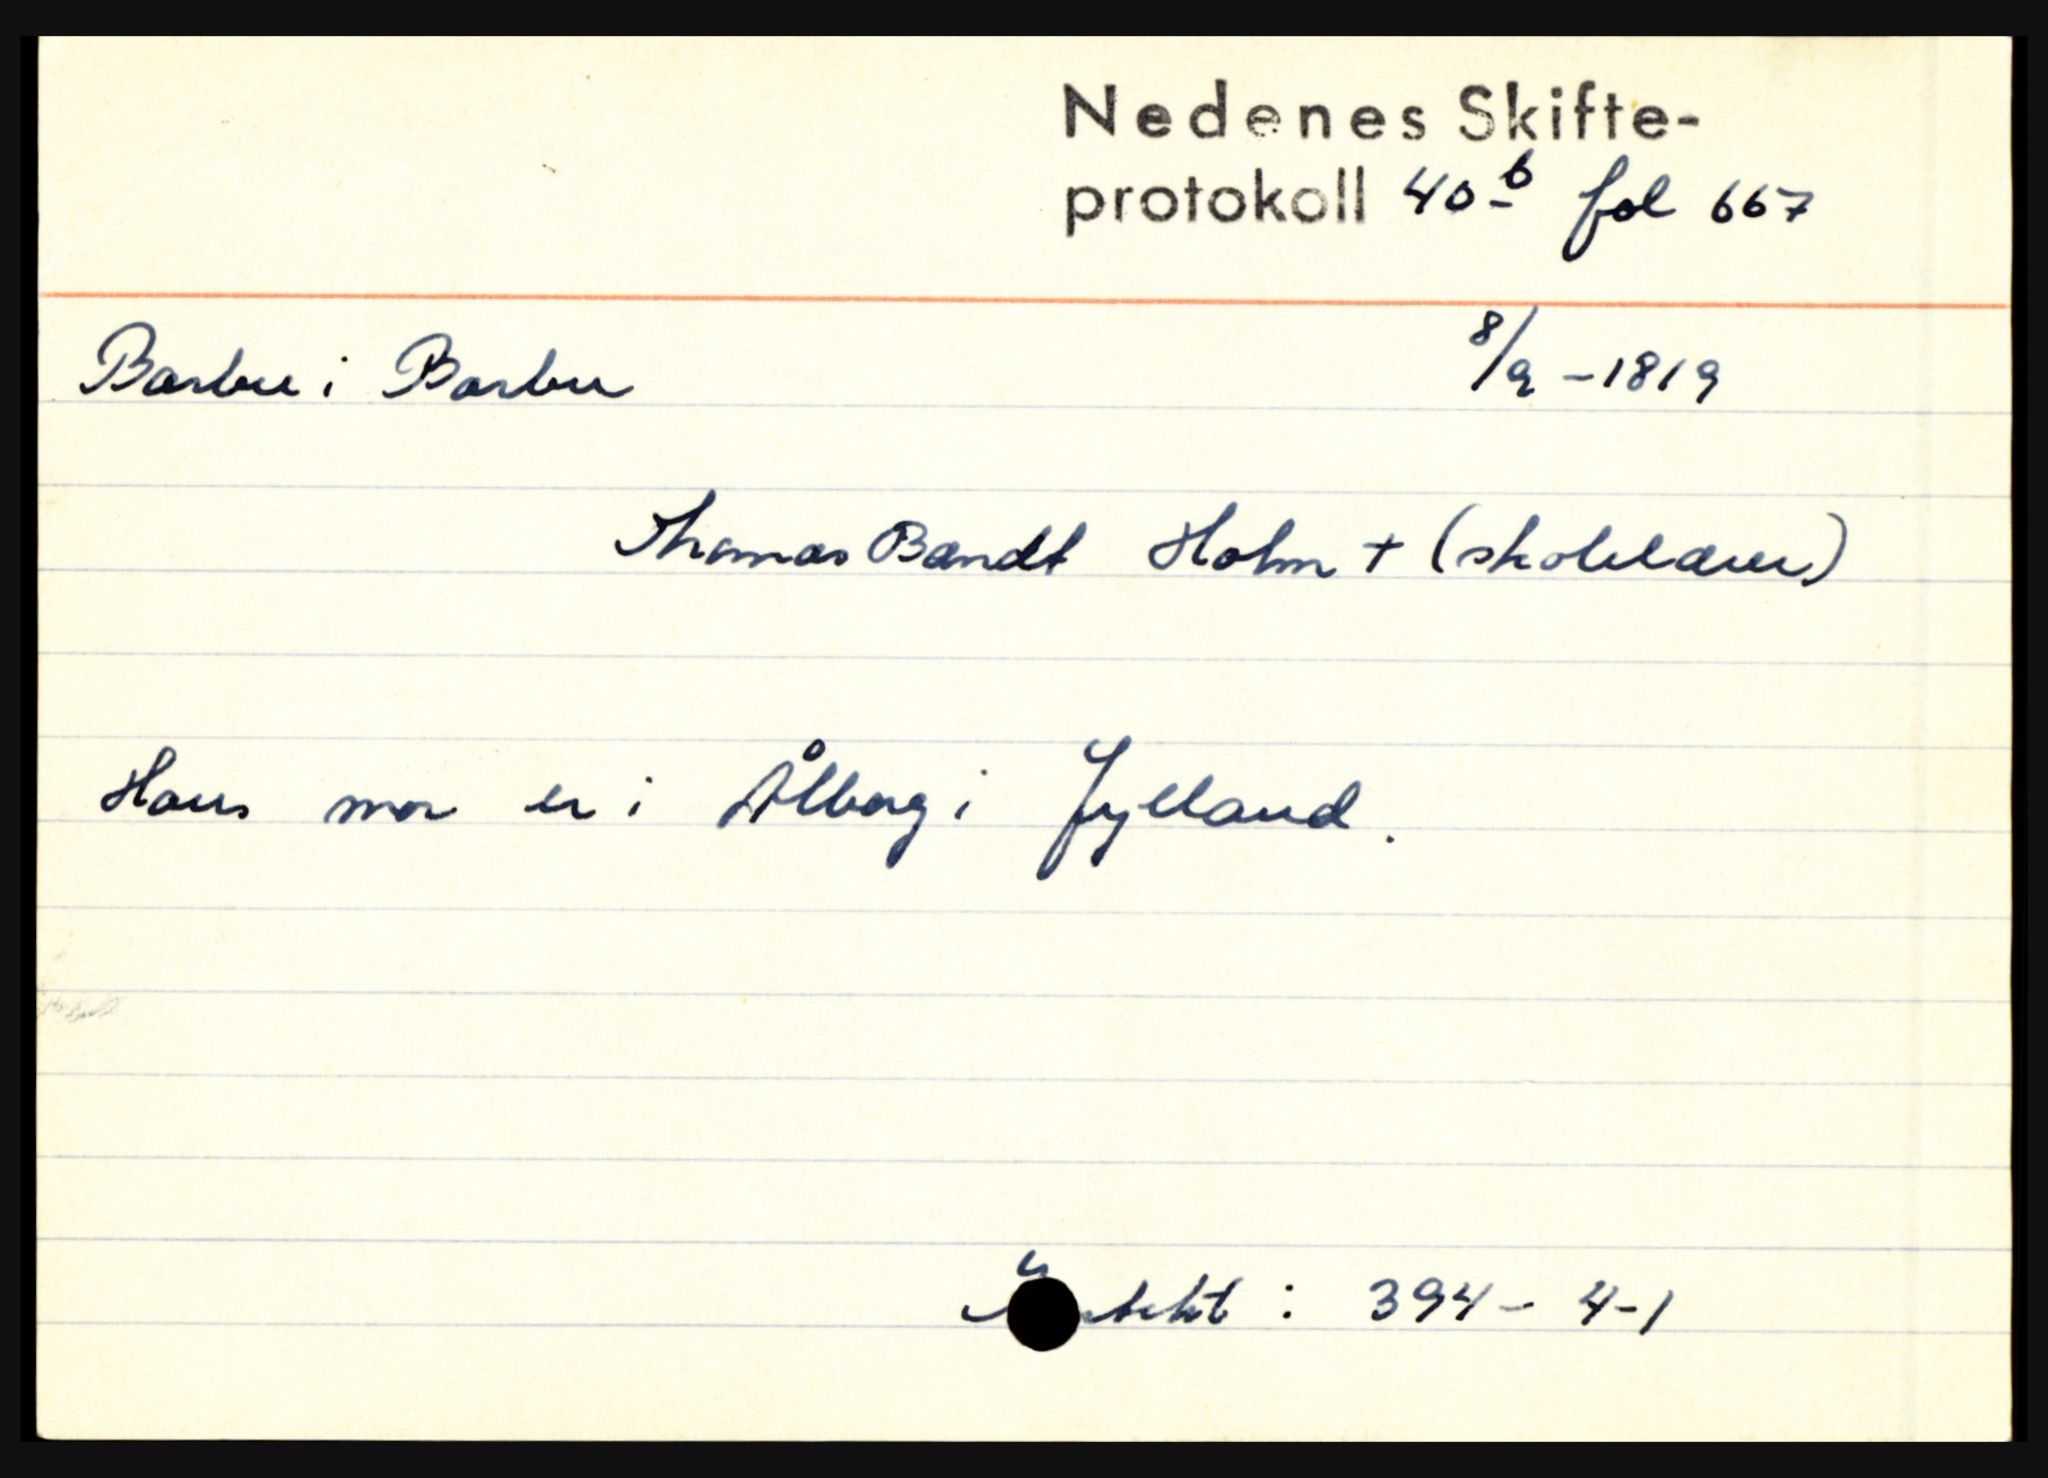 Nedenes Skifte-
protokoll 40b fol 667
Barbu i Barbu 8/9 - 1819
Thomas Bandt Holm + (skolelærer)
Hans mor er i Ålborg i Jylland.
: 394 - 4 - 1